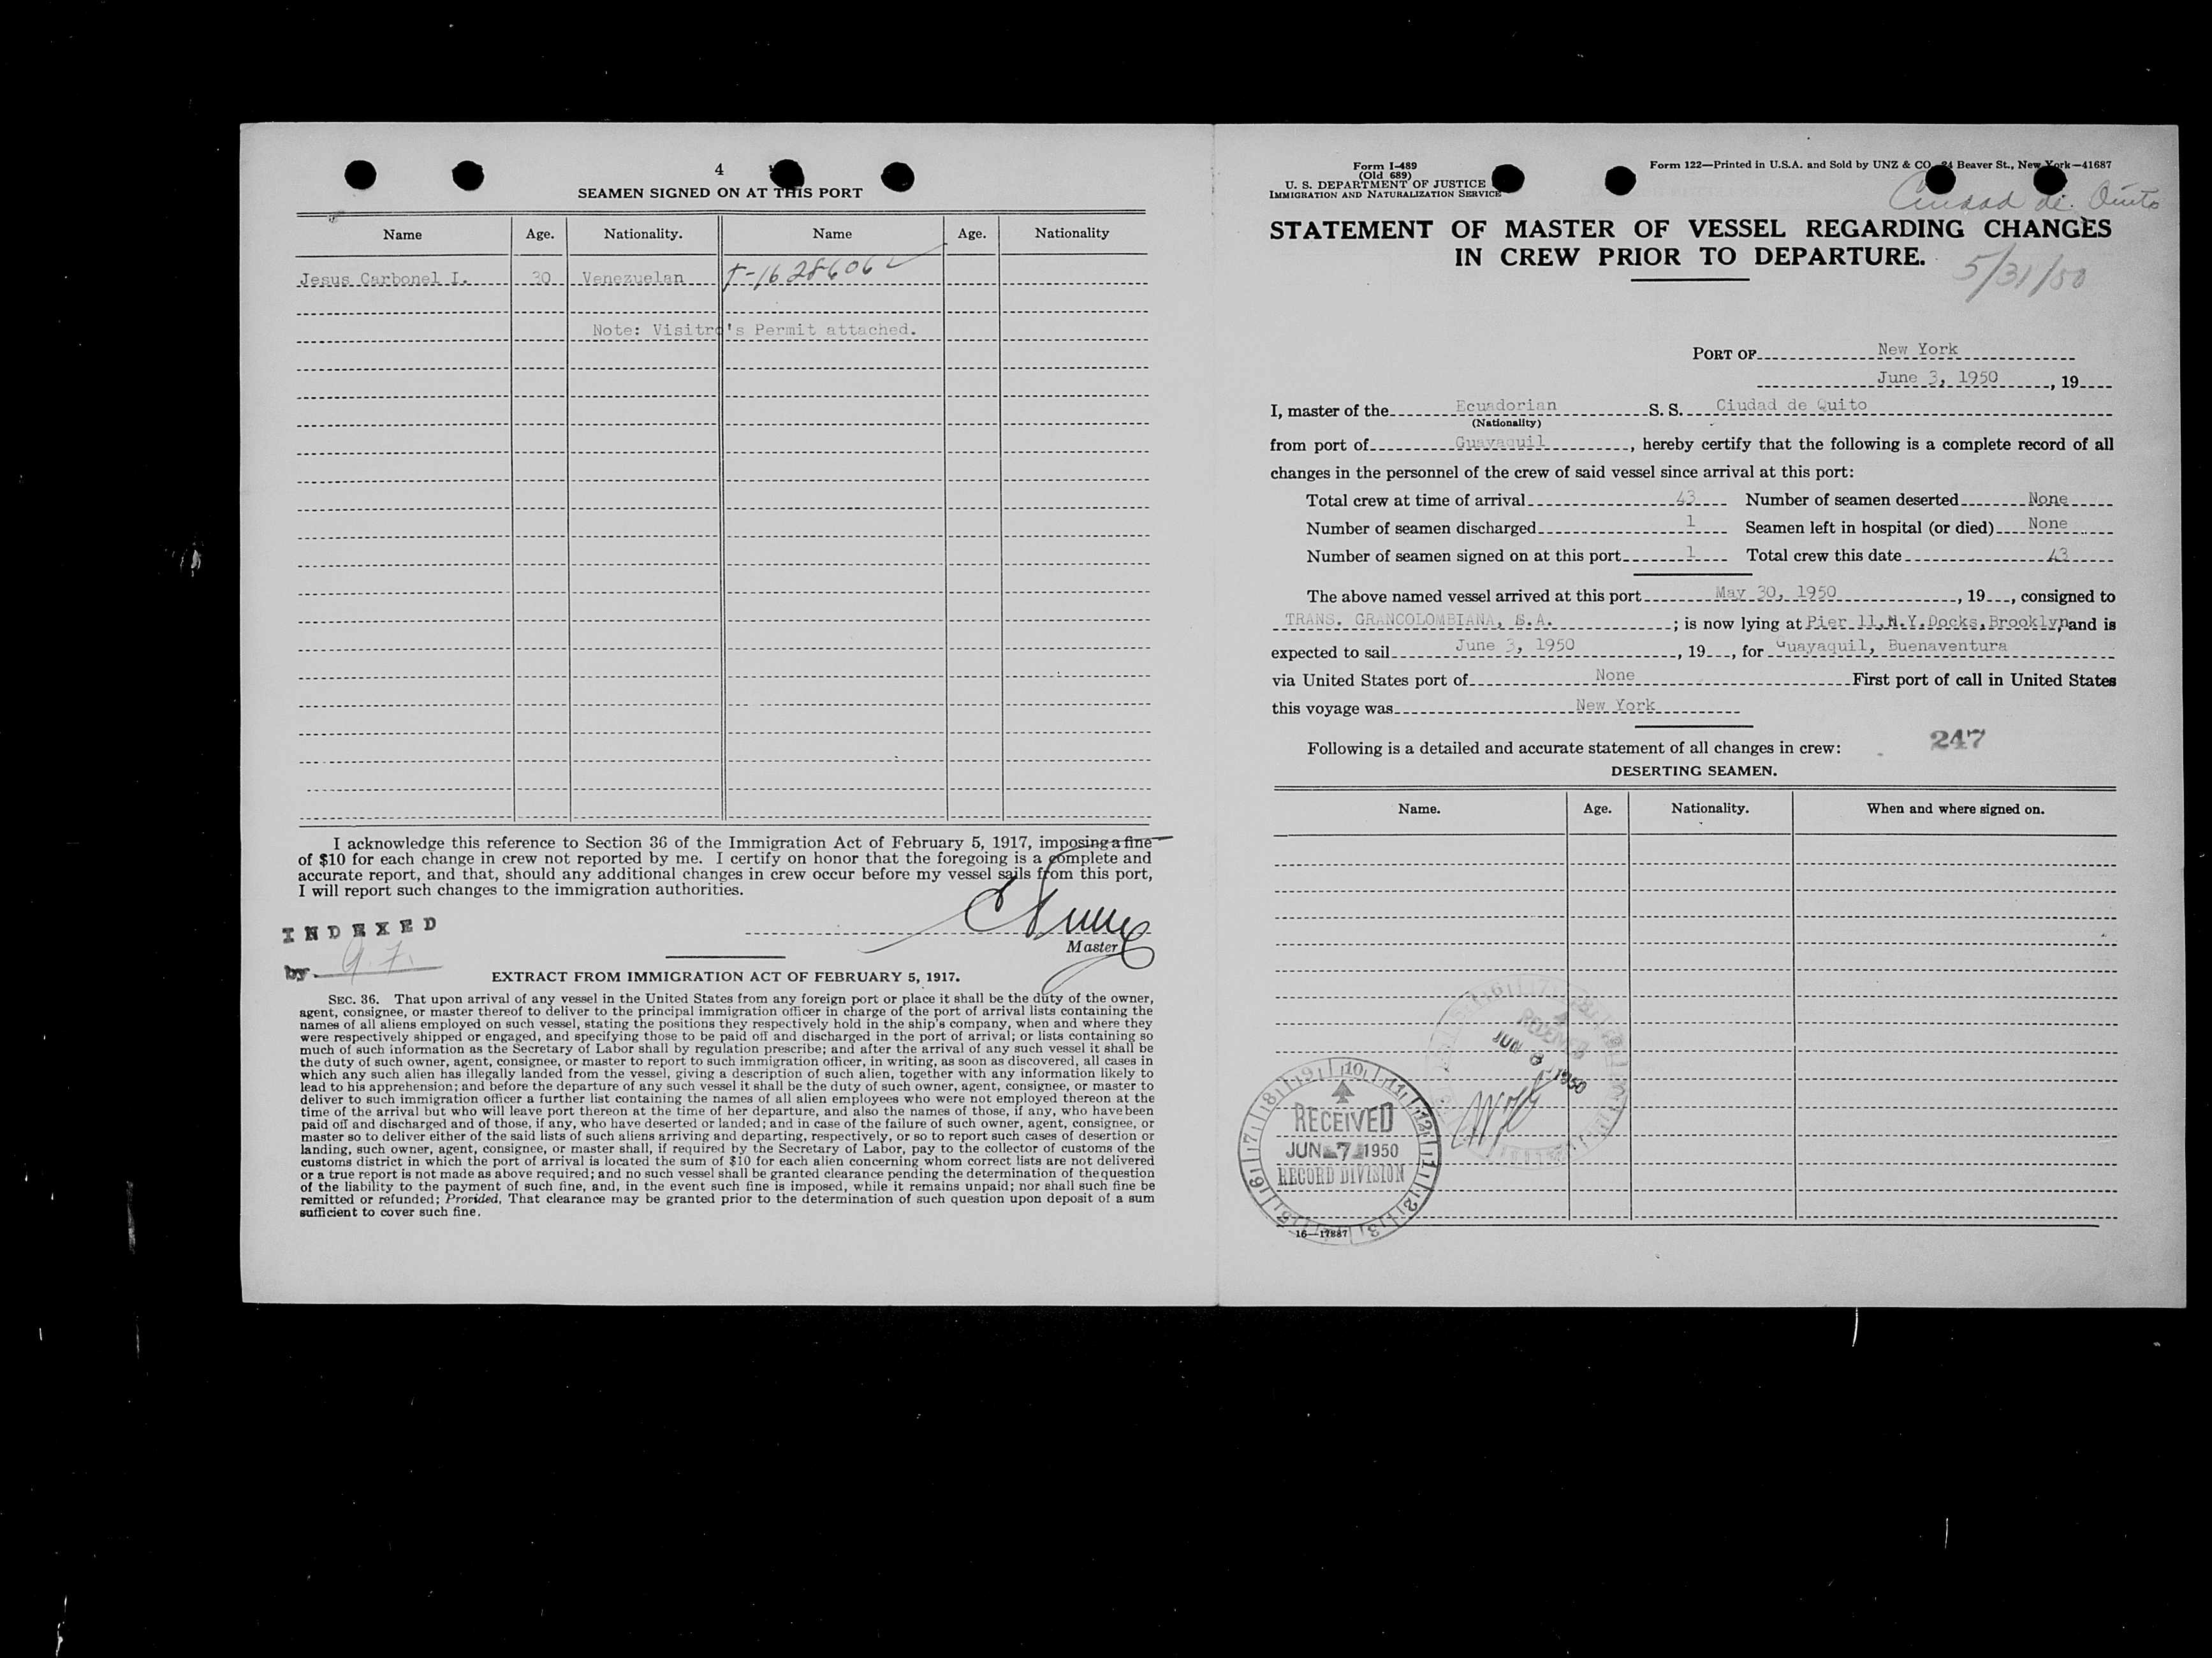 4
SEAMEN SIGNED ON AT THIS PORT
Name Age. Nationality. Name Age. Nationality
Jesus Carbonel I. 30 Venezuelan T-1628606
Note: Visitro's Permit attached.
I acknowledge this reference to Section 36 of the Immigration Act of February 5, 1917, imposing a fine
of $10 for each change in crew not reported by me. I certify on honor that the foregoing is a complete and
accurate report, and that, should any additional changes in crew occur before my vessel sails from this port,
I will report such changes to the immigration authorities.
INDEXED
by
Master
EXTRACT FROM IMMIGRATION ACT OF FEBRUARY 5, 1917.
SEC. 36. That upon arrival of any vessel in the United States from any foreign port or place it shall be the duty of the owner,
agent, consignee, or master thereof to deliver to the principal immigration officer in charge of the port of arrival lists containing the
names of all aliens employed on such vessel, stating the positions they respectively hold in the ship's company, when and where they
were respectively shipped or engaged, and specifying those to be paid off and discharged in the port of arrival; or lists containing so
much of such information as the Secretary of Labor shall by regulation prescribe; and after the arrival of any such vessel it shall be
the duty of such owner, agent, consignee, or master to report to such immigration officer, in writing, as soon as discovered, all cases in
which any such alien has illegally landed from the vessel, giving a description of such alien, together with any information likely to
lead to his apprehension; and before the departure of any such vessel it shall be the duty of such owner, agent, consignee, or master to
deliver to such immigration officer a further list containing the names of all alien employees who were not employed thereon at the
time of the arrival but who will leave port thereon at the time of her departure, and also the names of those, if any, who have been
paid off and discharged and of those, if any, who have deserted or landed; and in case of the failure of such owner, agent, consignee, or
master so to deliver either of the said lists of such aliens arriving and departing, respectively, or so to report such cases of desertion or
landing, such owner, agent, consignee, or master shall, if required by the Secretary of Labor, pay to the collector of customs of the
customs district in which the port of arrival is located the sum of $10 for each alien concerning whom correct lists are not delivered
or a true report is not made as above required; and no such vessel shall be granted clearance pending the determination of the question
of the liability to the payment of such fine, and, in the event such fine is imposed, while it remains unpaid; nor shall such fine be
remitted or refunded; Provided, That clearance may be granted prior to the determination of such question upon deposit of a sum
sufficient to cover such fine.
Form I-489
(Old 689)
U. S. DEPARTMENT OF JUSTICE
IMMIGRATION AND NATURALIZATION SERVICE
Form 122—Printed in U.S.A. and Sold by UNZ & CO. 24 Beaver St., New York—41687
Ciudad de Quito
STATEMENT OF MASTER OF VESSEL REGARDING CHANGES
IN CREW PRIOR TO DEPARTURE.
5/31/50
PORT OF New York
June 3, 1950, 19
I, master of the Ecuadorian S. S. Ciudad de Quito
(Nationality)
from port of Guayaquil, hereby certify that the following is a complete record of all
changes in the personnel of the crew of said vessel since arrival at this port:
Total crew at time of arrival 43 Number of seamen deserted None
Number of seamen discharged 1 Seamen left in hospital (or died) None
Number of seamen signed on at this port 1 Total crew this date 43
The above named vessel arrived at this port May 30, 1950, 19, consigned to
TRANS. GRANCOLOMBIANA, S.A.; is now lying at Pier 11,N.Y.Docks,Brooklyn and is
expected to sail June 3, 1950, 19, for Guayaquil, Buenaventura
via United States port of None First port of call in United States
this voyage was New York
Following is a detailed and accurate statement of all changes in crew: 247
DESERTING SEAMEN.
Name. Age. Nationality. When and where signed on.
RECEIVED
JUN 1950
RECEIVED
JUN 7 1950
RECORD DIVISION
16—17887